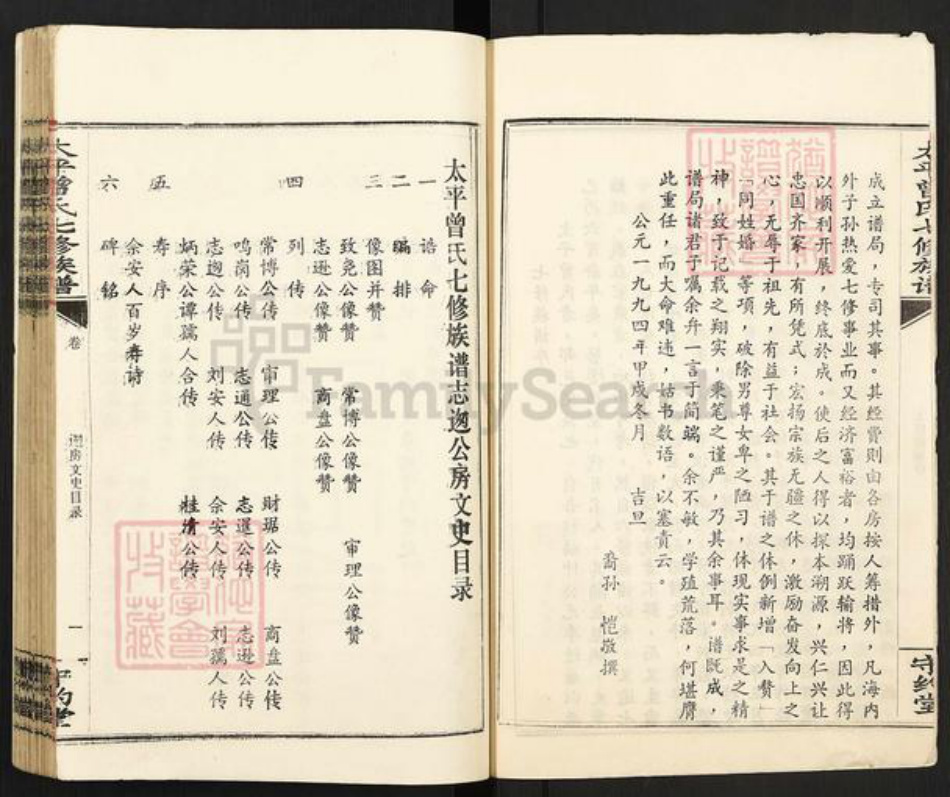 成立谱局，专司其事。其经费则由各房按人筹措外，凡海内
外子孙热爱七修事业而又经济富裕者，均踊跃输将，因此得
以顺利开展，终底於成。使后之人得以探本溯源，兴仁兴让
忠国齐家，有所凭式；宏扬宗族无疆之休，激励奋发向上之
心，无辱于祖先，有益于社会。其于谱之体例新增「入赘」
「同姓婚」等项，破除男尊女卑之陋习，体现实事求是之精
神，致于记载之翔实，秉笔之谨严，乃其余事耳。谱既成，
谱局诸君子嘱余弁一言于简端。余不敏，学殖荒落，何堪膺
此重任，而大命难违，姑书数语，以塞责云。
公元一九九四年甲戌冬月 吉旦
裔孙 恺敬撰
太平曾氏七修族谱
守约堂
太平曾氏七修族谱志迥公房文史目录
一 诰命
二 编排
三 像图并赞
致尧公像赞 常博公像赞 审理公像赞
志逊公像赞 商盘公像赞
四 列传
常博公传 审理公传 财琚公传 商盘公传
鸣岗公传 志通公传 志暹公传 志逊公传
志迥公传 刘安人传 余安人传 刘孺人传
炳荣公谭孺人合传 桂清公传
五 寿序
余安人百岁寿诗
六 碑铭
太平曾氏七修族谱
卷
迥房文史目录
一
守约堂
FamilySearch